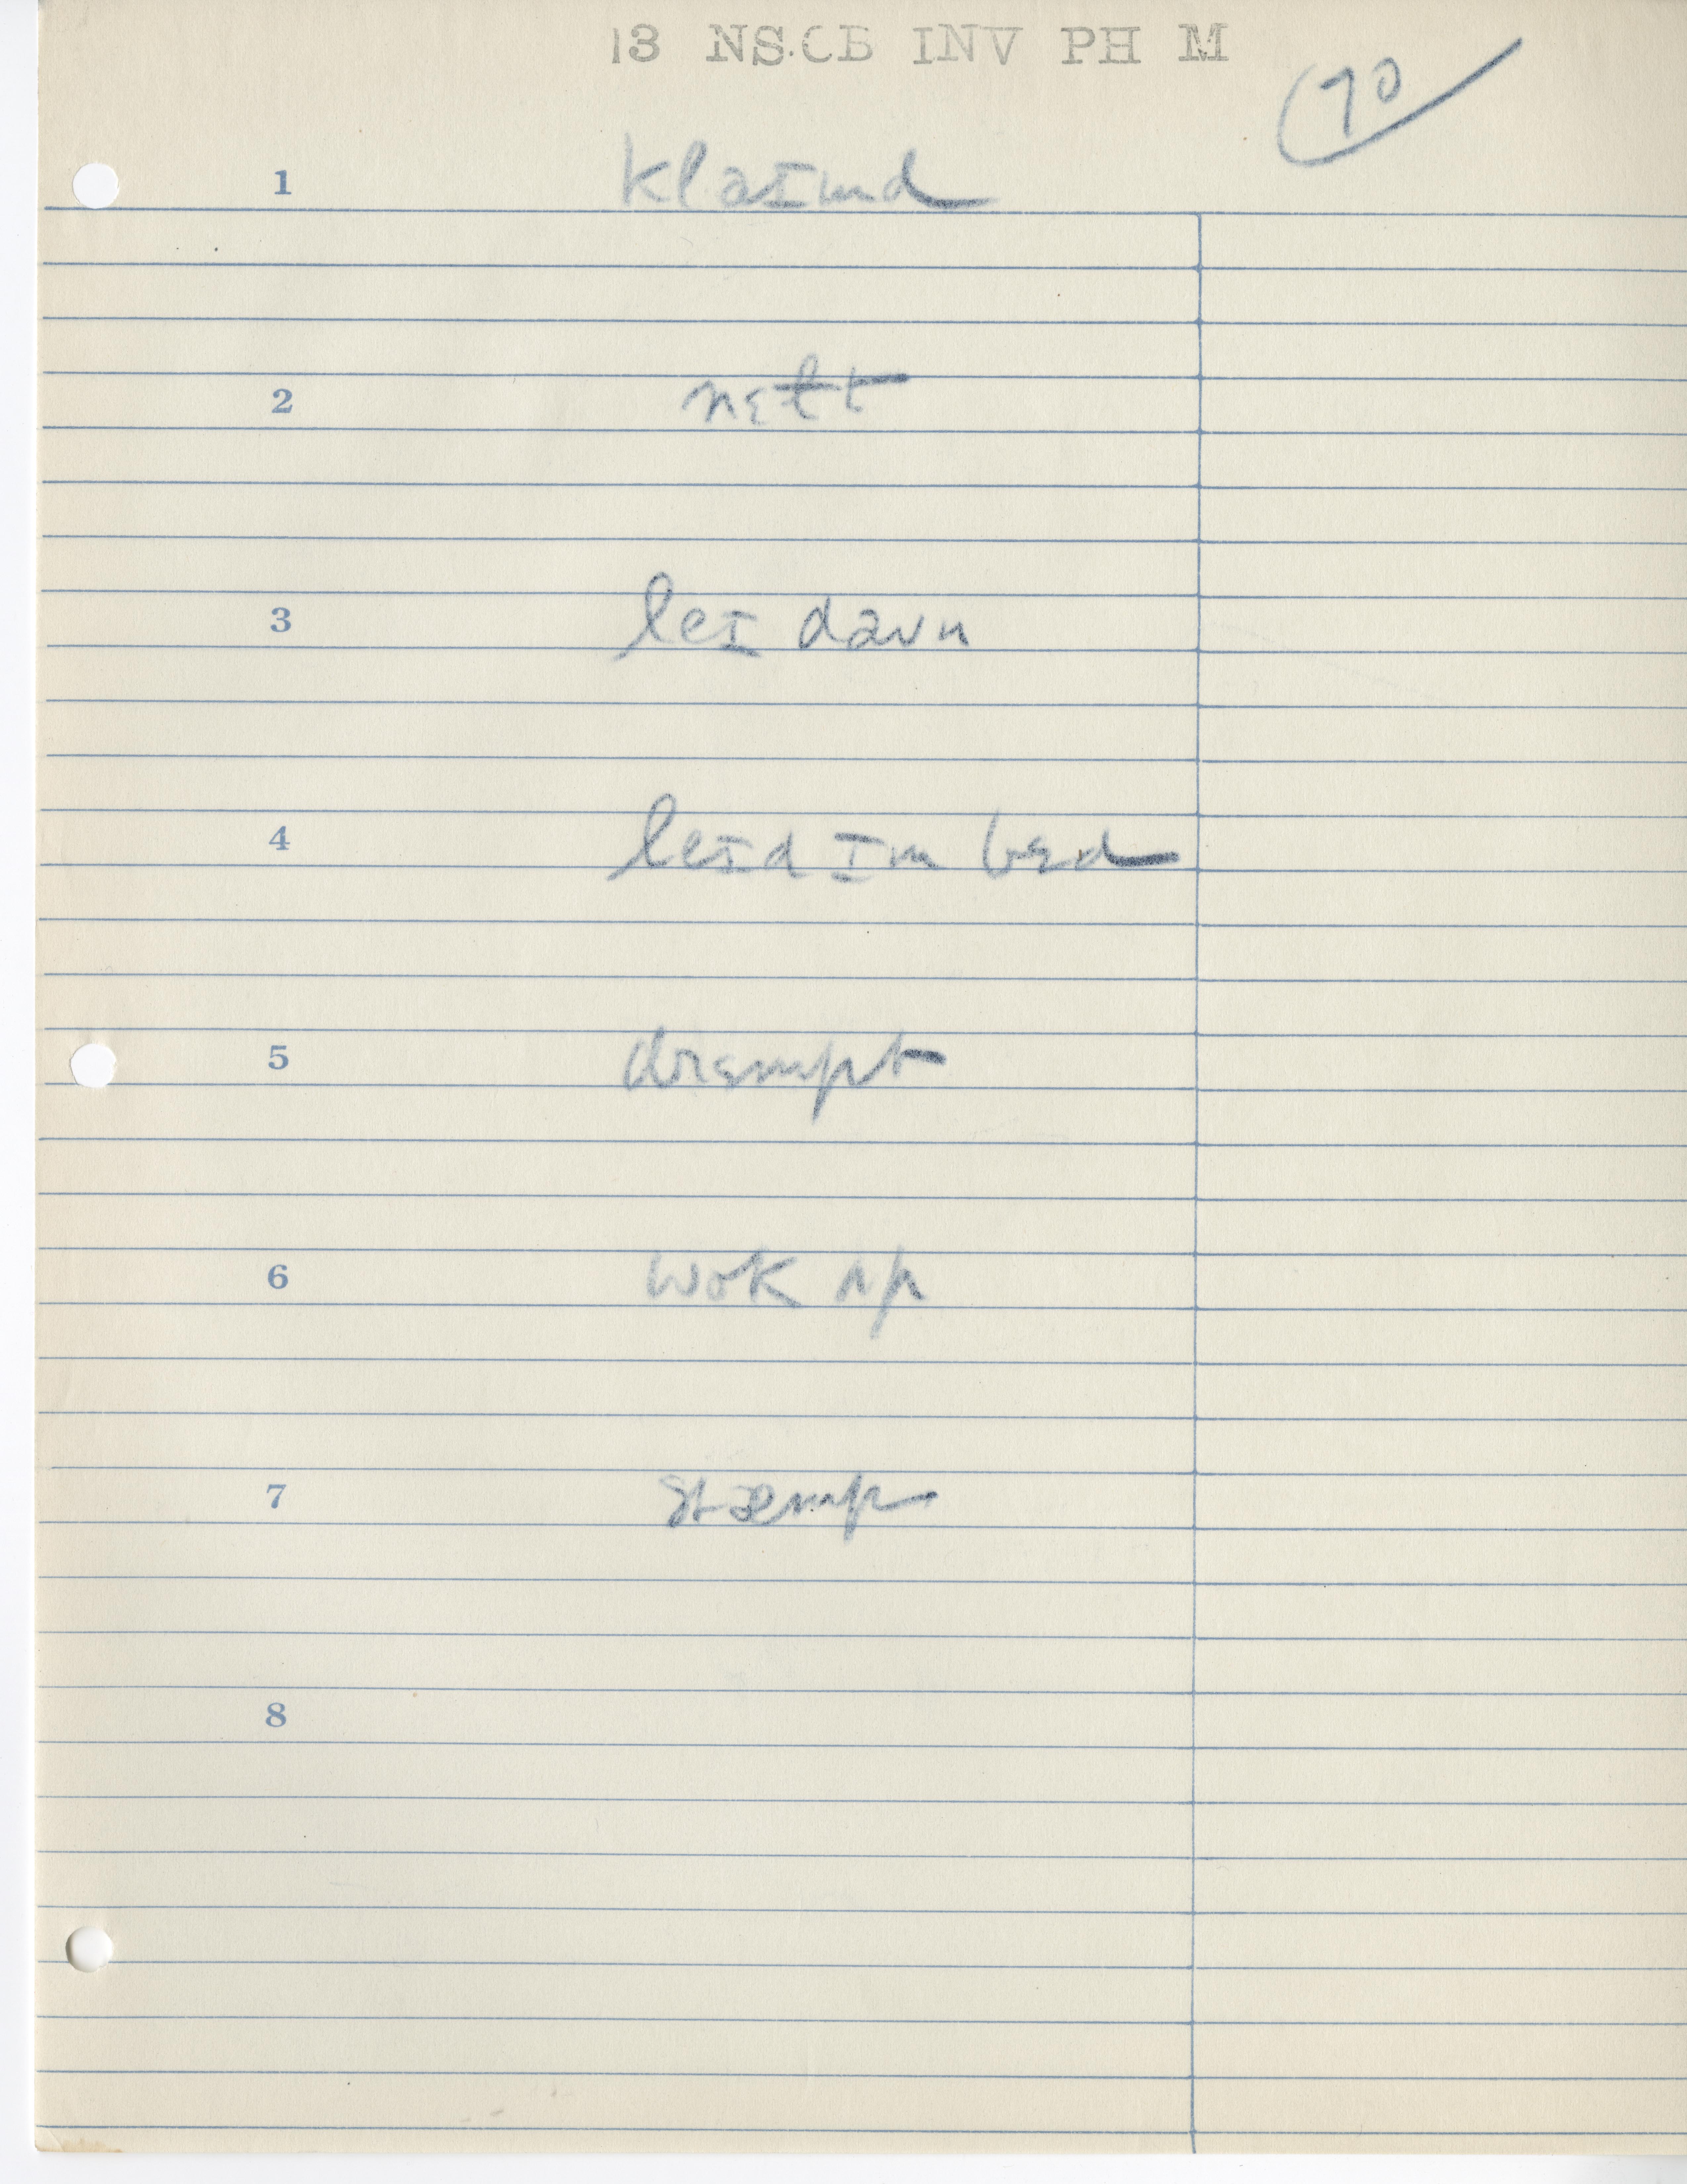 13 NS.CB INV PH M
70
1 klaɪmd
2 nɛtt
3 leɪ daʊn
4 leɪd ɪn bɛd
5 drɛmpt
6 wok ʌp
7 stæmp
8